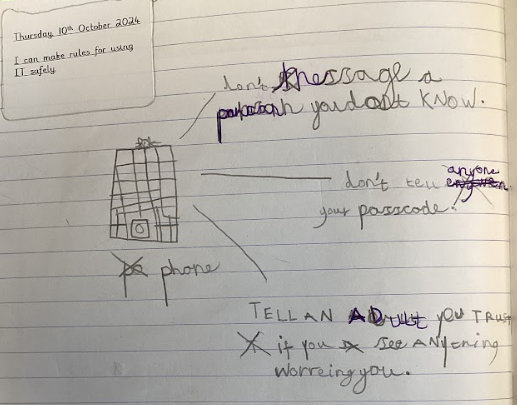 Thursday 10th October 2024
I can make rules for using
IT safely
don't message a
you dont KNOW.
don't tell anyone
your passcode.
phone
TELL AN ADult you TRUST
if you see ANything
worreing you.